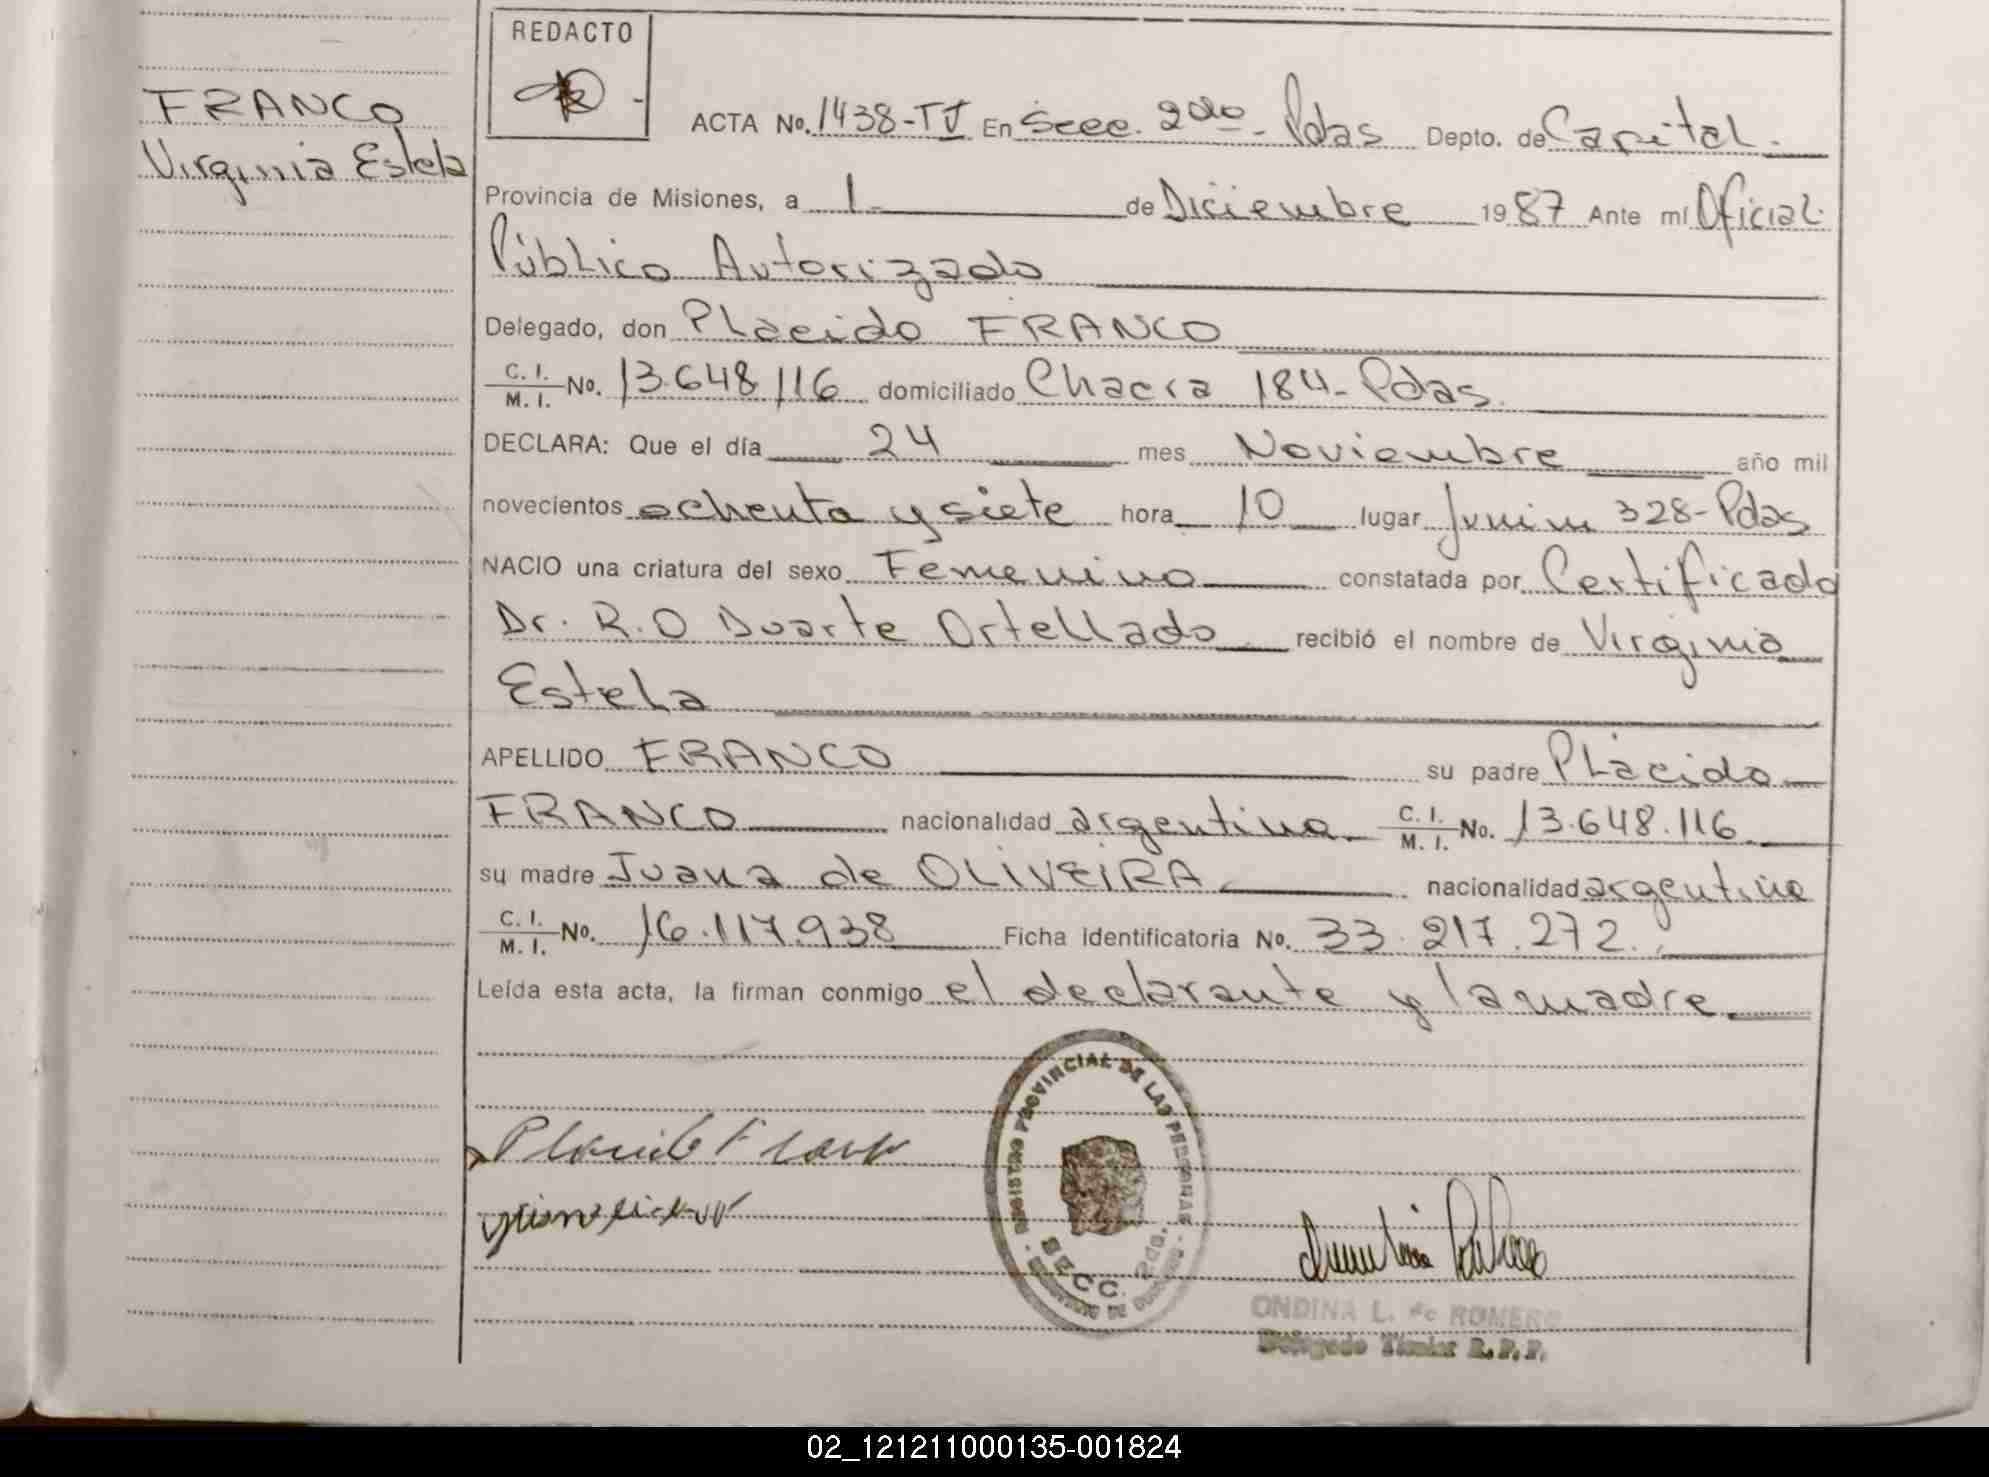 FRANCO
Virginia Estela
REDACTO
ACTA No. 1438-TV En Secc. 2da - Pdas Depto. de Capital.
Provincia de Misiones, a 1 de Diciembre 1987 Ante mí Oficial
Público Autorizado
Delegado, don PLácido FRANCO
C. I. / M. I. No. 13.648.116 domiciliado Chacra 184- Pdas.
DECLARA: Que el día 24 mes Noviembre año mil
novecientos ochenta y siete hora 10 lugar Junin 328- Pdas
NACIO una criatura del sexo Femenino constatada por Certificado
Dr. R.O Duarte Ortellado recibió el nombre de Virginia
Estela
APELLIDO FRANCO su padre PLácido
FRANCO nacionalidad argentina C. I. / M. I. No. 13.648.116
su madre Juana de OLIVEIRA nacionalidad argentina
C. I. / M. I. No. 16.117.938 Ficha identificatoria No. 33.217.272.
Leída esta acta, la firman conmigo el declarante y la madre
REGISTRO PROVINCIAL DE LAS PERSONAS
SECC. 2da.
Placido Franco
ONDINA L. de ROMERO
Delegado Titular R. P. P.
02_121211000135-001824